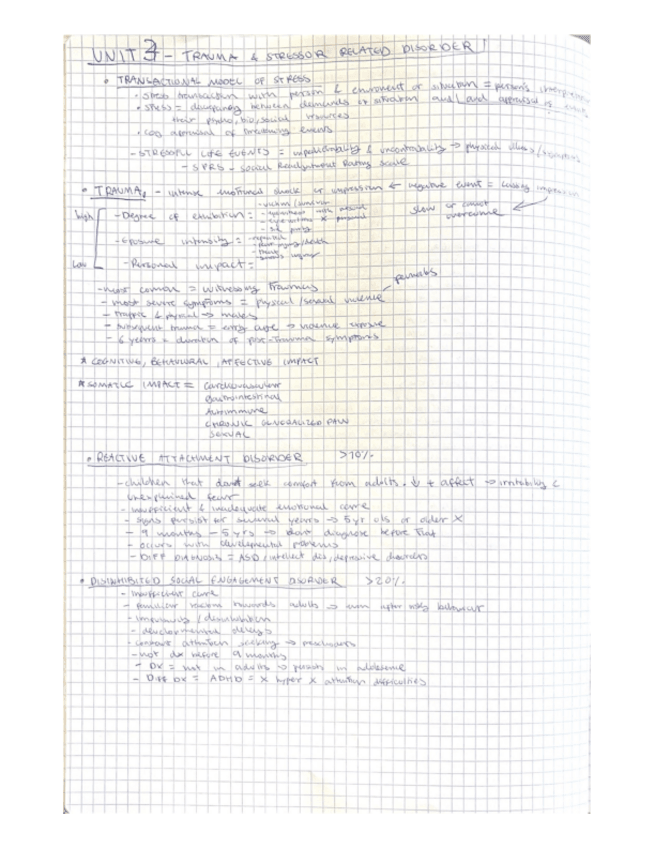 UNIT 3 - TRAUMA & STRESSOR RELATED DISORDER!
• TRANSACTIONAL MODEL OF STRESS
• stress transaction with person & enviroment or situation = person's
• stress = discrepancy between demands of situation and and appraisal is
their psycho, bio, social resources
• cog appraisal of threatening events
- STRESSFUL LIFE EVENTS = unpredictability & uncontrollability → physical illness/
- SRRS - Social Readjustment Rating Scale
• TRAUMA, - intense emotional shock or impression ← negative event = lasting impression
slow or cannot overcome
high
- Degree of exhibition: - victim/survivor
- eyewitness
- 3rd party
- Exposure intensity:
- threat
Low
- Personal impact:
- most common = witnessing traumas
- most severe symptoms = physical/sexual violence
- traffic & physical → males
- subsequent trauma = early age → violence
- 6 years = duration of post-trauma symptoms
* COGNITIVE, BEHAVIORAL, AFFECTIVE IMPACT
* SOMATIC IMPACT = Cardiovascular
Gastrointestinal
Autoimmune
CHRONIC GENERALIZED PAIN
SEXUAL
• REACTIVE ATTACHMENT DISORDER >10%
- children that don't seek comfort from adults. ↓ + affect → irritability &
unexplained fear
- insufficient & inadequate emotional care
- signs persist for several years → 5yr olds or older X
- 9 months - 5 yrs → don't diagnose before that
- occurs with developmental
- DIFF DIAGNOSIS = ASD, intellect dis, depressive disorders
• DISINHIBITED SOCIAL ENGAGEMENT DISORDER >20%
- insufficient care
- familiar towards adults → even after
- impulsivity / disinhibition
- developmental delays
- constant attention seeking →
- not dx before 9 months
- DX = not in adults → persists in adolescence
- Diff DX = ADHD = X hyper X attention difficulties